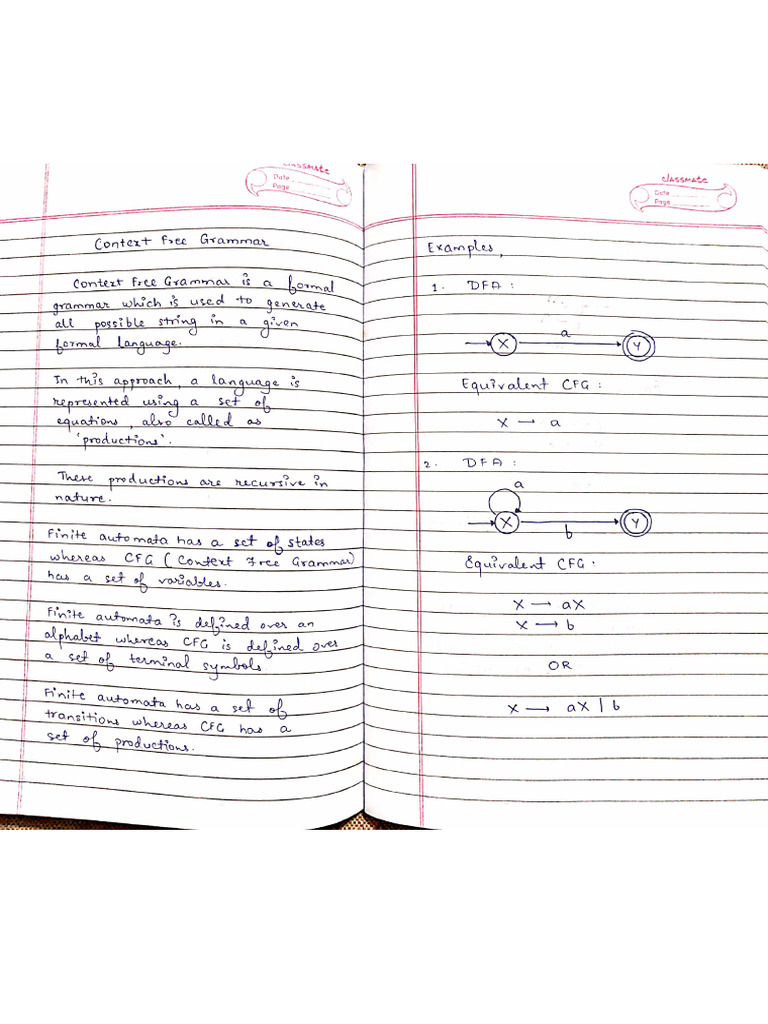 classmate
Date
Page
Context Free Grammar
Context Free Grammar is a formal
grammar which is used to generate
all possible string in a given
formal language.
In this approach, a language is
represented using a set of
equations, also called as
'productions'.
These productions are recursive in
nature.
Finite automata has a set of states
whereas CFG (Context Free Grammar)
has a set of variables.
Finite automata is defined over an
alphabet whereas CFG is defined over
a set of terminal symbols.
Finite automata has a set of
transitions whereas CFG has a
set of productions.
classmate
Date
Page
Examples,
1. DFA :
a
X Y
Equivalent CFG :
X → a
2. DFA :
a
X Y
b
Equivalent CFG :
X → aX
X → b
OR
X → aX | b